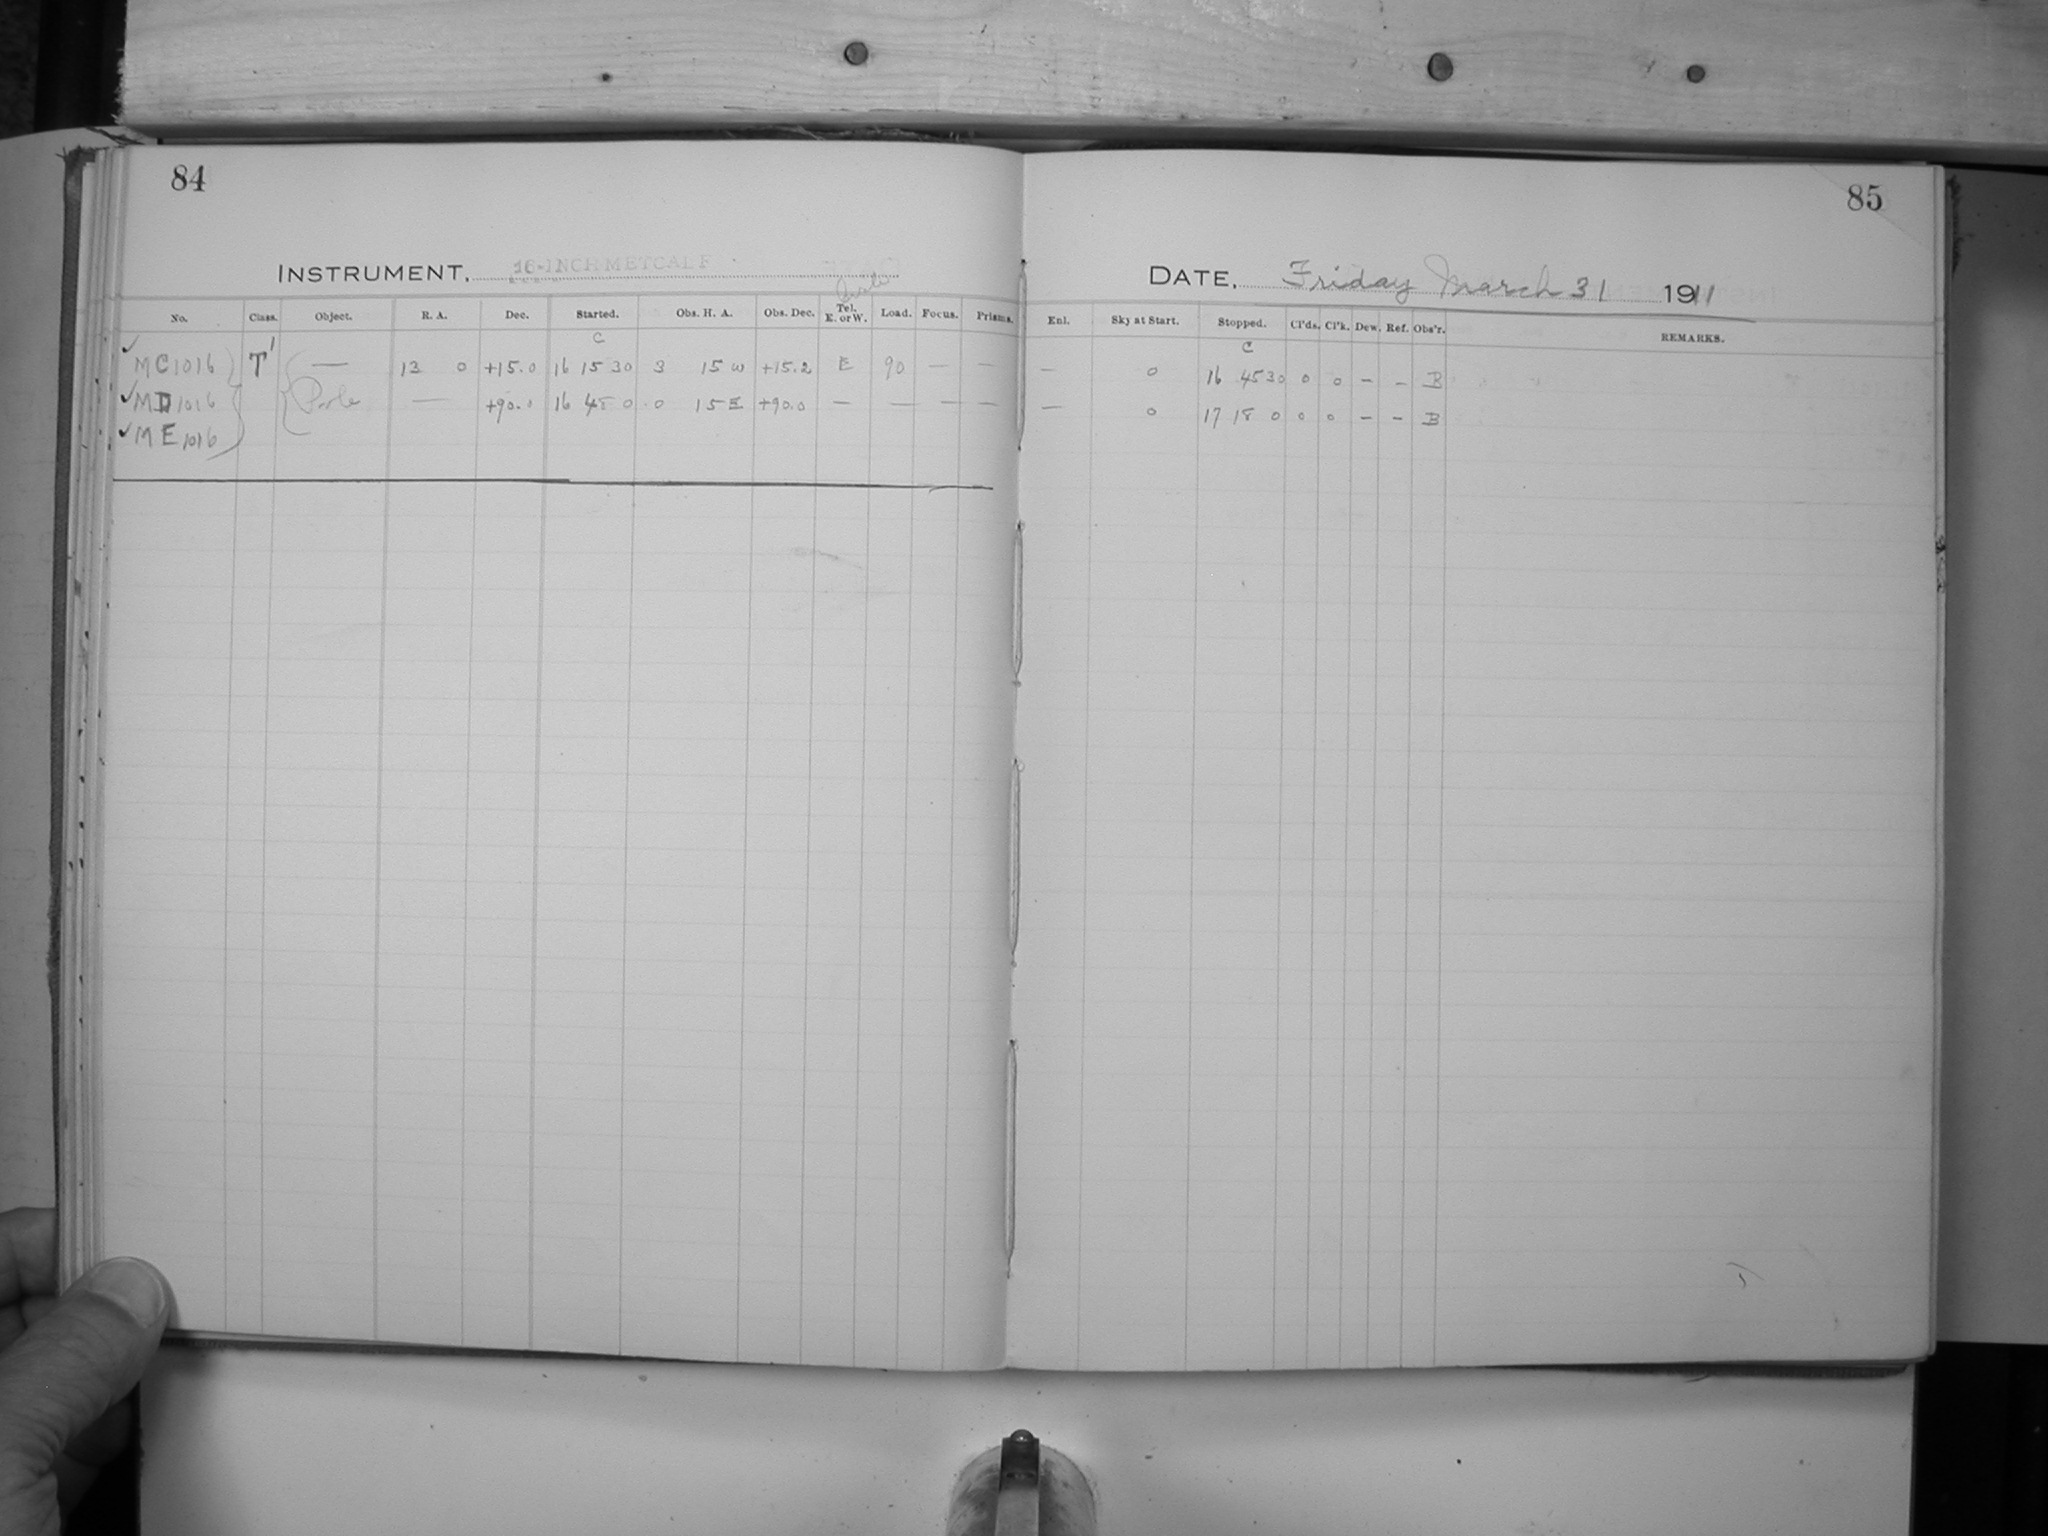 84
85
INSTRUMENT, 16-INCH METCALF
DATE, Friday March 31 1911
No. Class. Object. R. A. Dec. Started. Obs. H. A. Obs. Dec. Tel. E. or W. Load. Focus. Prisms. Enl. Sky at Start. Stopped. Cl'ds. Cl'k. Dew. Ref. Obs'r. REMARKS.
C C
✓ MC1016 T' — 13 0 +15.0 16 15 30 3 15 W +15.2 E 90 — — — 0 16 45 30 0 0 – – B
✓ MD1016 Pole — +90.0 16 48 0 0 15 E +90.0 — — — — — 0 17 18 0 0 0 – – B
✓ ME1016